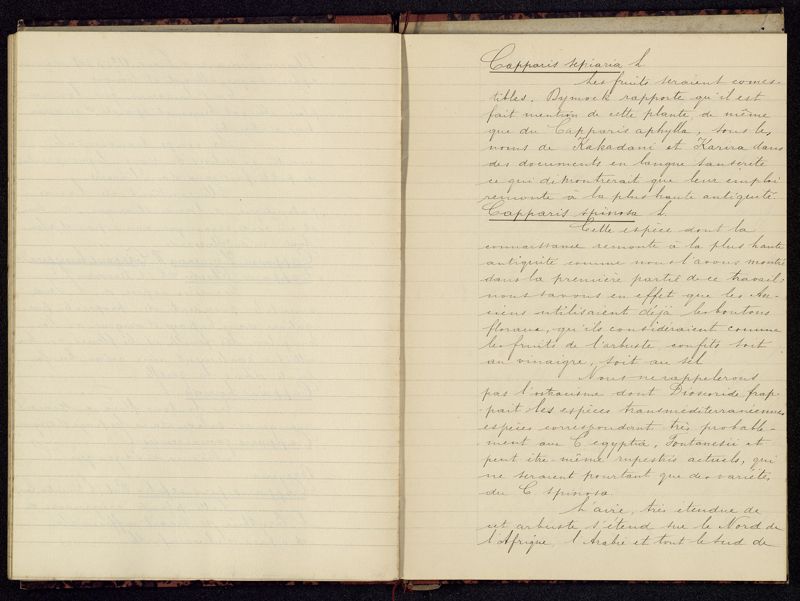 Capparis sepiaria L
Les fruits seraient comes-
tibles. Dymock rapporte qu'il est
fait mention de cette plante, de même
que du Capparis aphylla, sous les
noms de Kakadani et Karira dans
des documents en langue sanscrite
ce qui démontrerait que leur emploi
remonte à la plus haute antiquité.
Capparis spinosa L.
Cette espèce dont la
connaissance remonte à la plus haute
antiquité comme nous l'avons montré
dans la première partie de ce travail;
nous savons en effet que les An-
ciens utilisaient déjà les boutons
floraux, qu'ils considéraient comme
les fruits de l'arbuste, confits soit
au vinaigre, soit au sel
Nous ne rappelerons
pas l'ostracisme dont Dioscoride frap-
pait les espèces transméditerranéennes,
espèces correspondant très probable-
ment aux C egyptia, Fontanesii et
peut être même rupestris actuels, qui
ne seraient pourtant que des variétés
du C. spinosa.
L'aire, très étendue de
cet arbuste s'étend sur le Nord de
l'Afrique, l'Arabie et tout le Sud de